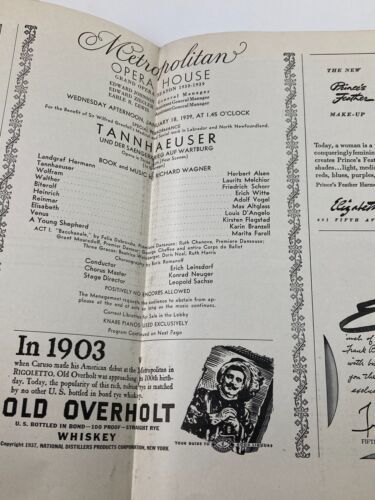 Metropolitan
OPERA HOUSE
GRAND OPERA SEASON 1938-1939
EDWARD
General Manager
EDWARD
Assistant General Manager
EARLE R. LEWIS
Assistant General Manager
WEDNESDAY AFTERNOON, JANUARY 18, 1939, AT 1.45 O'CLOCK
For the Benefit of Sir Wilfred Grenfell's Medical work in Labrador and North Newfoundland.
TANNHAEUSER
UND DER SAENGERKRIEG AUF WARTBURG
Opera in
BOOK and MUSIC by RICHARD WAGNER
Landgraf Hermann Herbert Alsen
Tannhaeuser Lauritz Melchior
Wolfram Friedrich Schorr
Walther Erich Witte
Biterolf Adolf Vogel
Heinrich Max Altglass
Reinmar Louis D'Angelo
Elisabeth Kirsten Flagstad
Venus Karin Branzell
A Young Shepherd Marita Farell
ACT I. "Bacchanale," by Felia Dubrovska, Premiere Danseuse; Ruth Chanova, Premiere Danseuse;
Grant Mouradoff, Premier Danseur; George Chaffee and entire Corps de Ballet
Three Graces: Beatrice Weinberger, Doris Neal, Ruth Harris
Choreography by Boris Romanoff
Conductor Erich Leinsdorf
Chorus Master Konrad Neuger
Stage Director Leopold Sachse
POSITIVELY NO ENCORES ALLOWED
The Management requests the audience to abstain from ap-
plause at the end of acts as long as the music continues.
Correct Librettos for Sale in the Lobby
KNABE PIANOS USED EXCLUSIVELY
Program Continued on Next Page
In 1903
when Caruso made his American debut at the Metropolitan in
RIGOLETTO, Old Overholt was approaching its 100th birth-
day. Today, the popularity of this rich, robust rye is matched
by no other U. S. bottled in bond rye whiskey.
OLD OVERHOLT
U. S. BOTTLED IN BOND—100 PROOF—STRAIGHT RYE
WHISKEY
Copyright 1937, NATIONAL DISTILLERS PRODUCTS CORPORATION, NEW YORK.
YOUR GUIDE TO GOOD LIQUORS
THE NEW
Prince's
Feather
MAKE-UP
Today, a woman is a
conqueringly feminine
creates Prince's Feather
shades...light, medi
reds, blues, purples,
Prince's Feather Harmo
Elizabeth
691 FIFTH AV
E
Frank
exclusi
FIFT